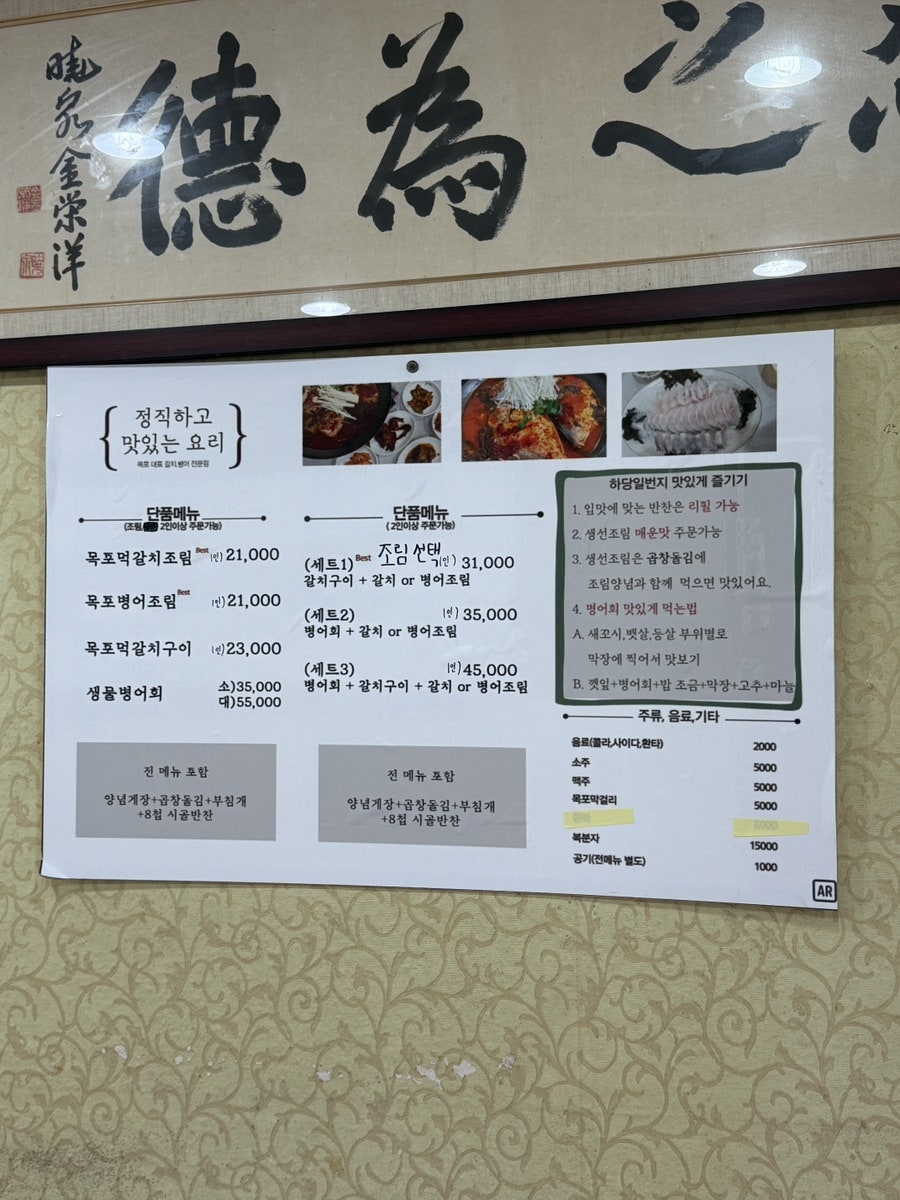 德為之
曉泉金榮洋
정직하고
맛있는 요리
목포 대표 갈치,병어 전문점
단품메뉴
(조림, 2인이상 주문가능)
목포먹갈치조림 Best 1인) 21,000
목포병어조림 Best 1인) 21,000
목포먹갈치구이 1인) 23,000
생물병어회 소)35,000
대)55,000
전 메뉴 포함
양념게장+곱창돌김+부침개
+8첩 시골반찬
단품메뉴
( 2인이상 주문가능)
(세트1) Best 조림선택 1인) 31,000
갈치구이 + 갈치 or 병어조림
(세트2) 1인) 35,000
병어회 + 갈치 or 병어조림
(세트3) 1인) 45,000
병어회 + 갈치구이 + 갈치 or 병어조림
전 메뉴 포함
양념게장+곱창돌김+부침개
+8첩 시골반찬
하당일번지 맛있게 즐기기
1. 입맛에 맞는 반찬은 리필 가능
2. 생선조림 매운맛 주문가능
3. 생선조림은 곱창돌김에
조림양념과 함께 먹으면 맛있어요.
4. 병어회 맛있게 먹는법
A. 새꼬시,뱃살,등살 부위별로
막장에 찍어서 맛보기
B. 깻잎+병어회+밥 조금+막장+고추+마늘
주류, 음료,기타
음료(콜라,사이다,환타) 2000
소주 5000
맥주 5000
목포막걸리 5000
복분자 15000
공기(전메뉴 별도) 1000
AR